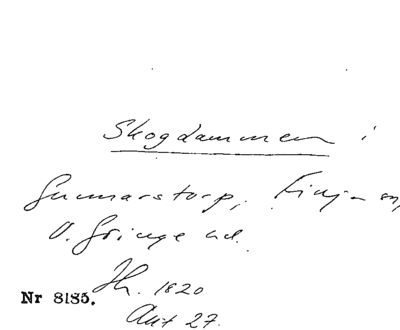 Skogdammen i
Gunnarstorp, Finja sn,
V. Göinge hd.
Nr 8185. Hh. 1820
Akt 27.